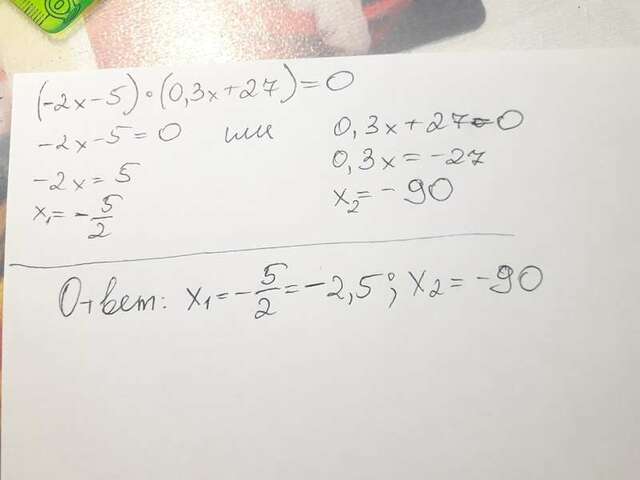 (-2x-5)·(0,3x+27)=0
-2x-5=0 или 0,3x+27=0
-2x=5 0,3x=-27
x₁=-5/2 x₂=-90
Ответ: x₁=-5/2=-2,5; x₂=-90